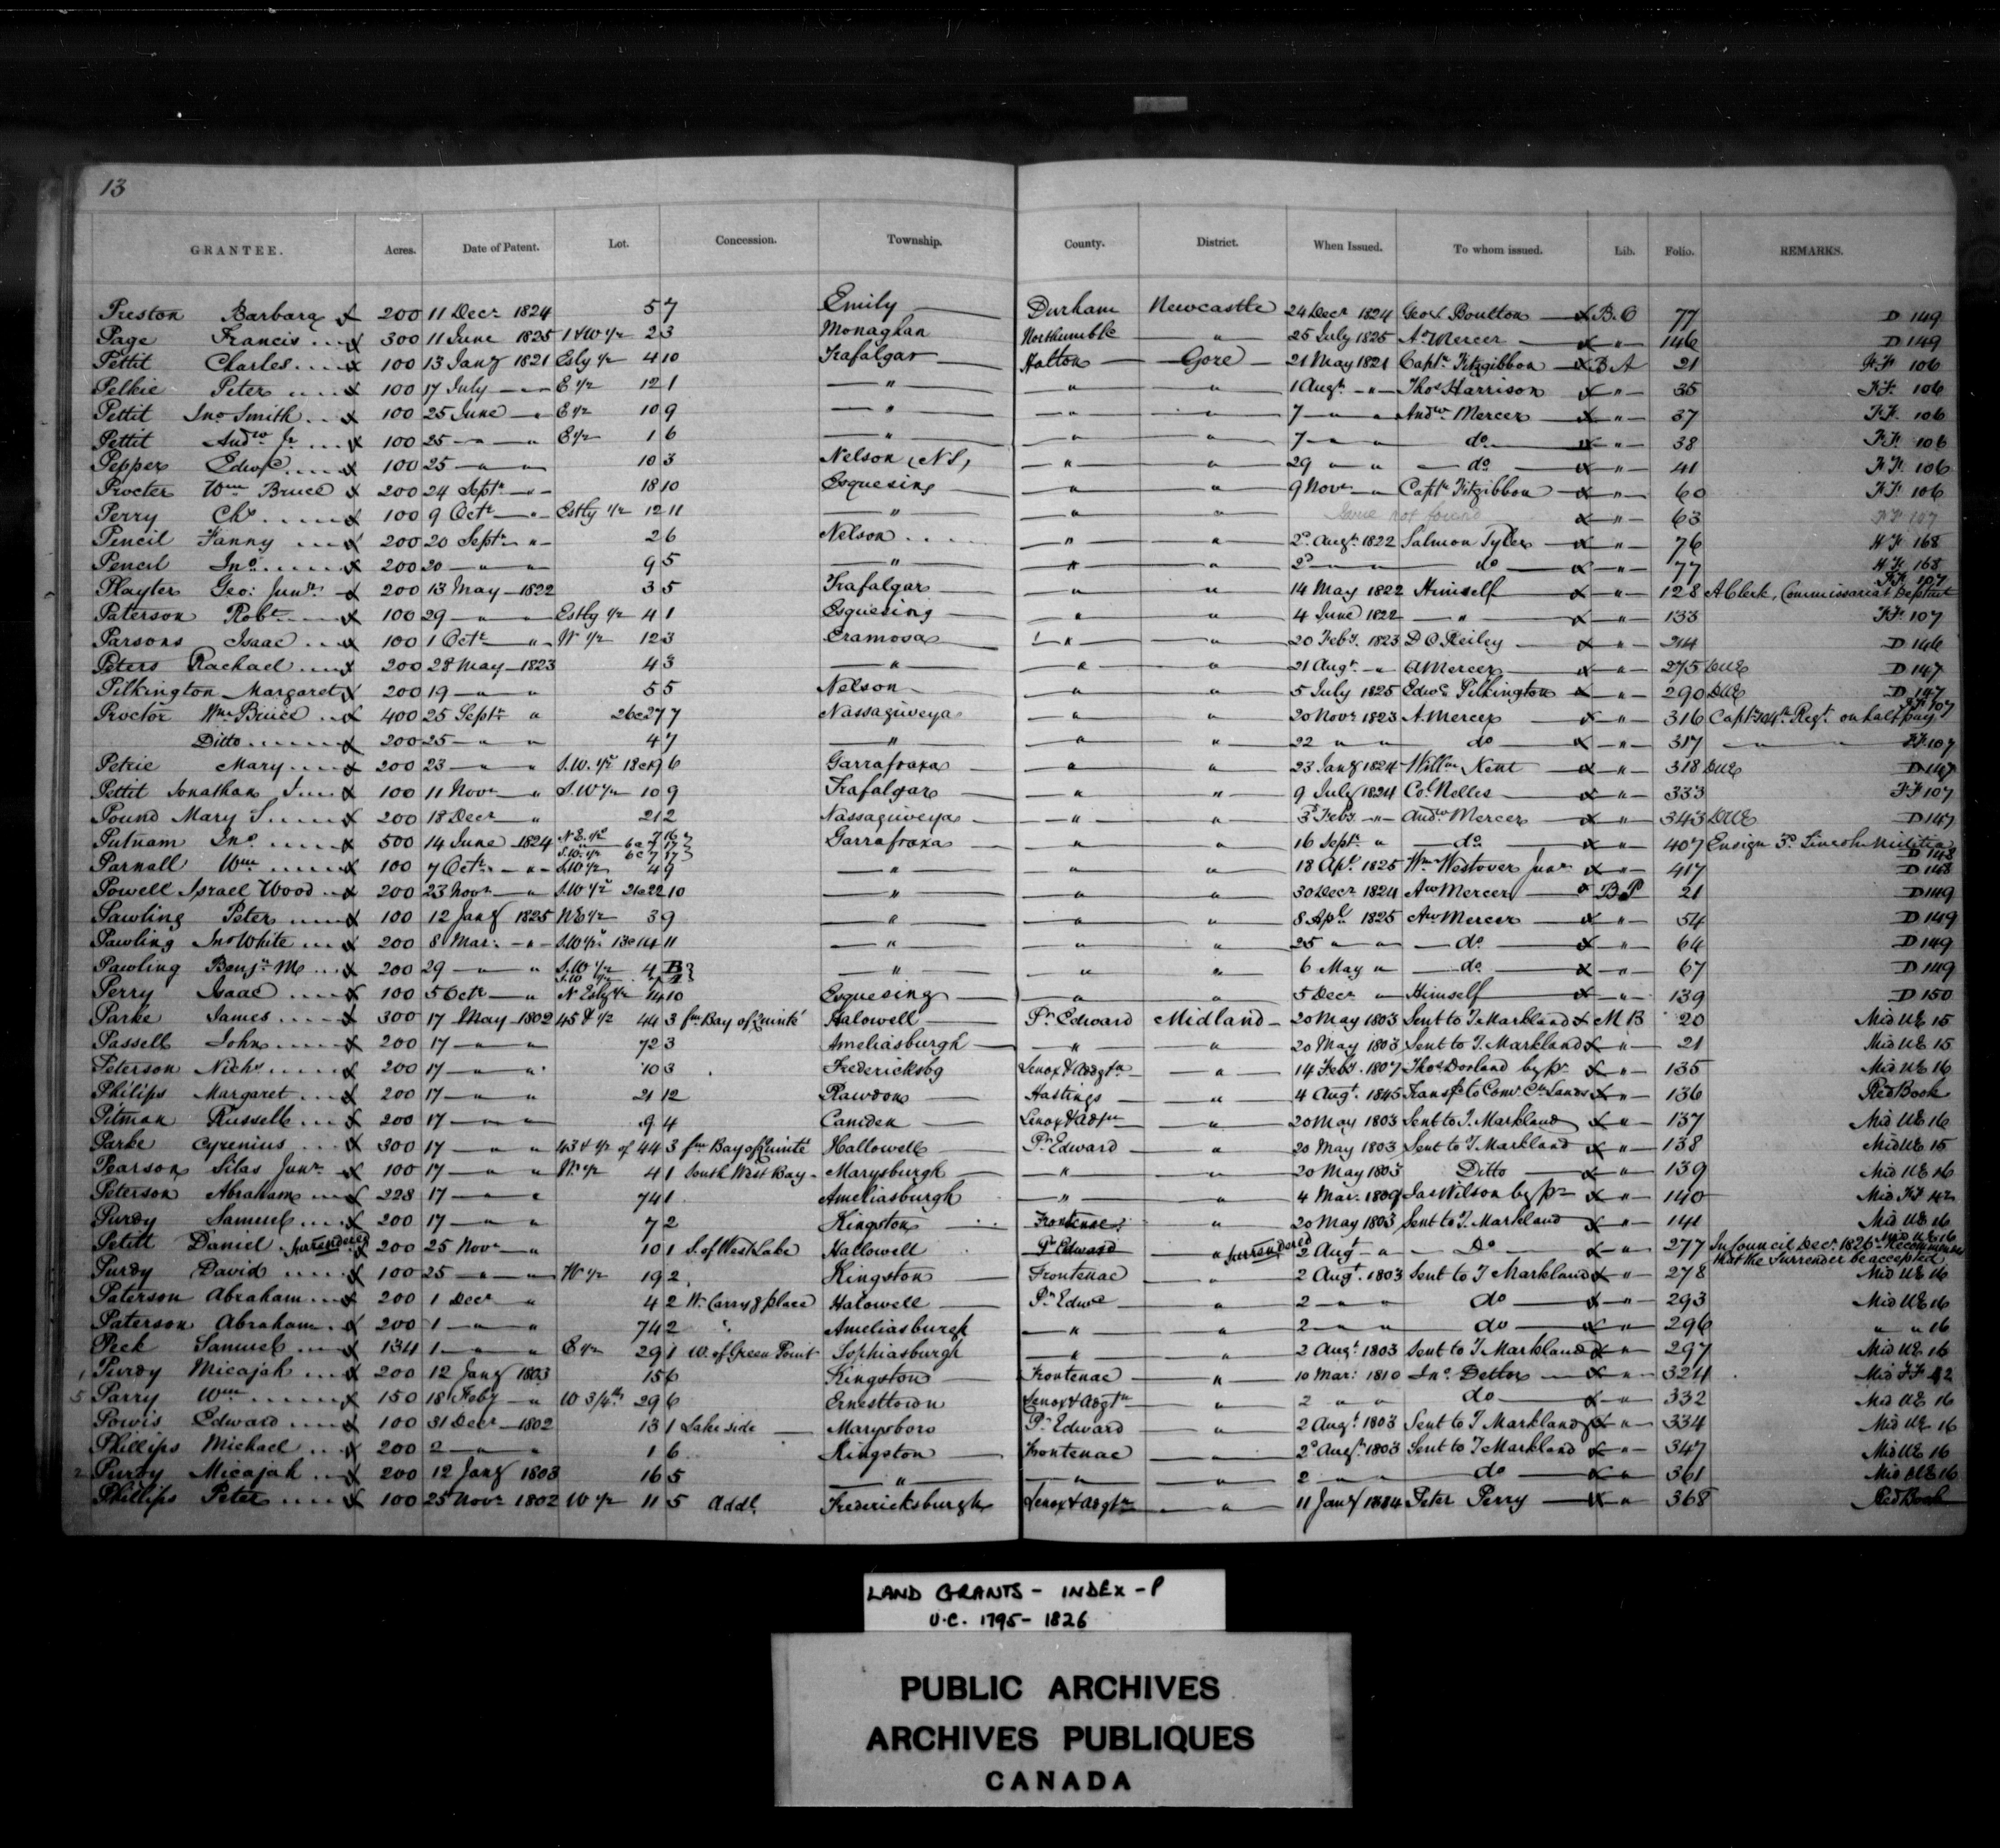 13
GRANTEE. Acres. Date of Patent. Lot. Concession. Township. County. District. When Issued. To whom issued. Lib. Folio. REMARKS.
Preston Barbara 200 11 Decr 1824 5 7 Emily Durham Newcastle 24 Decr 1824 Geo S. Boulton B.C 77 D 149
Page Francis 300 11 June 1825 1 & W 1/2 2 3 Monaghan Northumbld " 25 July 1825 A. Mercer " 146 D 149
Pettit Charles 100 13 Jany 1821 Esly 1/2 4 10 Trafalgar Halton Gore 21 May 1821 Captn Fitzgibbon B A 21 FF 106
Pelkie Peter 100 17 July " E 1/2 12 1 " " " 1 Augt " Thos Harrison " 35 FF 106
Pettit Jno Smith 100 25 June " E 1/2 10 9 " " " 7 " " Andw Mercer " 37 FF 106
Pettit Andw Jr 100 25 " " E 1/2 1 6 " " " 7 " " do " 38 FF 106
Pepper Edwd 100 25 " " 10 3 Nelson (NS) " " 29 " " do " 41 FF 106
Procter Wm Bruce 200 24 Septr " 18 10 Esquesing " " 9 Novr " Captn Fitzgibbon " 60 FF 106
Perry Chs 100 9 Octr " Estly 1/2 12 11 " " " Issue not found " 63 FF 107
Pencil Fanny 200 20 Septr " 2 6 Nelson " " 2d Augt 1822 Salmon Tyler " 76 FF 168
Pencil Jno 200 20 " " 9 5 " " " 2d " " do " 77 FF 168
Playter Geo: Junr 200 13 May 1822 3 5 Trafalgar " " 14 May 1822 Himself " 128 A Clerk, Commissariat Deptmt FF 107
Paterson Robt 100 29 " " Estly 1/2 4 1 Esquesing " " 4 June 1822 " " 133 FF 107
Parsons Isaac 100 1 Octr " W 1/2 12 3 Eramosa " " 20 Feby 1823 D O Reiley " 214 D 146
Peters Rachael 200 28 May 1823 4 3 " " " 21 Augt " A Mercer " 275 DUE D 147
Pilkington Margaret 200 19 " " 5 5 Nelson " " 5 July 1825 Edwd Pilkington " 290 DUE D 147
Proctor Wm Bruce 400 25 Septr " 26 & 27 7 Nassagiweya " " 20 Novr 1823 A. Mercer " 316 Captn 104th Regt on half pay FF 107
Ditto 200 25 " " 4 7 " " " 22 " " do " 317 " " FF 107
Petrie Mary 200 23 " " S.W. 1/2 18 & 19 6 Garrafraxa " " 23 Jany 1824 Willm Kent " 318 DUE D 147
Pettit Jonathan J. 100 11 Novr " S.W 1/2 10 9 Trafalgar " " 9 July 1824 Co. Nelles " 333 FF 107
Pound Mary S. 200 18 Decr " 21 2 Nassagiweya " " 3d Feby " Andw Mercer " 343 DUE D 147
Putnam Jno 500 14 June 1824 N.E. 1/2 6 & 7 16 S.W. 1/2 6 & 7 17 Garrafraxa " " 16 Septr " do " 407 Ensign 3d Lincoln Militia D 148
Parnall Wm 100 7 Octr " S.W 1/2 4 9 " " " 18 Apl 1825 Wm Westover Junr " 417 D 148
Powell Israel Wood 200 23 Novr " S.W 1/2 21 & 22 10 " " " 30 Decr 1824 Aw Mercer B P 21 D 149
Pawling Peter 100 12 Jany 1825 NE 1/2 3 9 " " " 8 Apl 1825 Aw Mercer " 54 D 149
Pawling Jno White 200 8 Mar: " S.W 1/2 13 & 14 11 " " " 25 " " do " 64 D 149
Pawling Benjn M. 200 29 " " S.W 1/2 4 B S.W 1/2 " " " 6 May " do " 67 D 149
Perry Isaac 100 5 Octr " N Esly 1/2 4 10 Esquesing " " 5 Decr " Himself " 139 D 150
Parke James 300 17 May 1802 45 & 1/2 44 3 fm Bay of Quinté Halowell Pr Edward Midland 20 May 1803 Sent to T. Markland M B 20 Mid UE 15
Passell John 200 17 " " 72 3 Ameliasburgh " " 20 May 1803 Sent to T. Markland " 21 Mid UE 15
Peterson Nichs 200 17 " " 10 3 Fredericksbg Lenox & Adgtn " 14 Feby 1807 Thos Dorland by pr " 135 Mid UE 16
Philips Margaret 200 17 " " 21 12 Rawdon Hastings " 4 Augt 1845 Transfd to Comr Cn Lands " 136 Red Book
Pitman Russell 200 17 " " 9 4 Camden Lenox & Adgtn " 20 May 1803 Sent to T. Markland " 137 Mid UE 16
Parke Cyrenius 300 17 " " 43 & 1/2 of 44 3 fm Bay of Quinté Hallowell Pr Edward " 20 May 1803 Sent to T Markland " 138 Mid UE 15
Pearson Silas Junr 100 17 " " W 1/2 4 1 South West Bay Marysburgh " " 20 May 1803 Ditto " 139 Mid UE 16
Peterson Abraham 228 17 " " 74 1 Ameliasburgh " " 4 Mar: 1809 Jas Wilson by pr " 140 Mid FF 42
Purdy Samuel 200 17 " " 7 2 Kingston Frontenac " 20 May 1803 Sent to T. Markland " 141 Mid UE 16
Petitt Daniel Surrendered 200 25 Novr " 10 1 S. of West Lake Hallowell Pr Edward " Surrendered 2 Augt " Do " 277 In Council Decr 1826 Recommended that the Surrender be accepted Mid UE 16
Purdy David 100 25 " " W 1/2 19 2 Kingston Frontenac " 2 Augt 1803 Sent to T Markland " 278 Mid UE 16
Paterson Abraham 200 1 Decr " 4 2 W. Carryg place Halowell Pr Edwd " 2 " " do " 293 Mid UE 16
Paterson Abraham 200 1 " " 74 2 " Ameliasburgh " " 2 " " do " 296 " " 16
Peck Samuel 134 1 " " E 1/2 29 1 W. of Green Point Sophiasburgh " " 2 Augt 1803 Sent to T Markland " 297 Mid UE 16
1 Purdy Micajah 200 12 Jany 1803 15 6 Kingston Frontenac " 10 Mar: 1810 Jno Detlor " 324 Mid FF 42
5 Parry Wm 150 18 Feby " W 3/4th 29 6 Ernesttown Lenox & Adgtn " 2 " " do " 332 Mid UE 16
Powis Edward 100 31 Decr 1802 13 1 Lake side Marysboro Pr Edward " 2 Augt 1803 Sent to T Markland " 334 Mid UE 16
Phillips Michael 200 2 " " 1 6 Kingston Frontenac " 2d Augt 1803 Sent to T Markland " 347 Mid UE 16
2 Purdy Micajah 200 12 Jany 1803 16 5 " " " 2 " " do " 361 Mid UE 16
Phillips Peter 100 25 Novr 1802 W 1/2 11 5 Addl. Fredericksburgh Lenox & Adgtn " 11 Jany Peter Perry " 368 Red Book
LAND GRANTS - INDEX - P
U.C. 1795 - 1826
PUBLIC ARCHIVES
ARCHIVES PUBLIQUES
CANADA